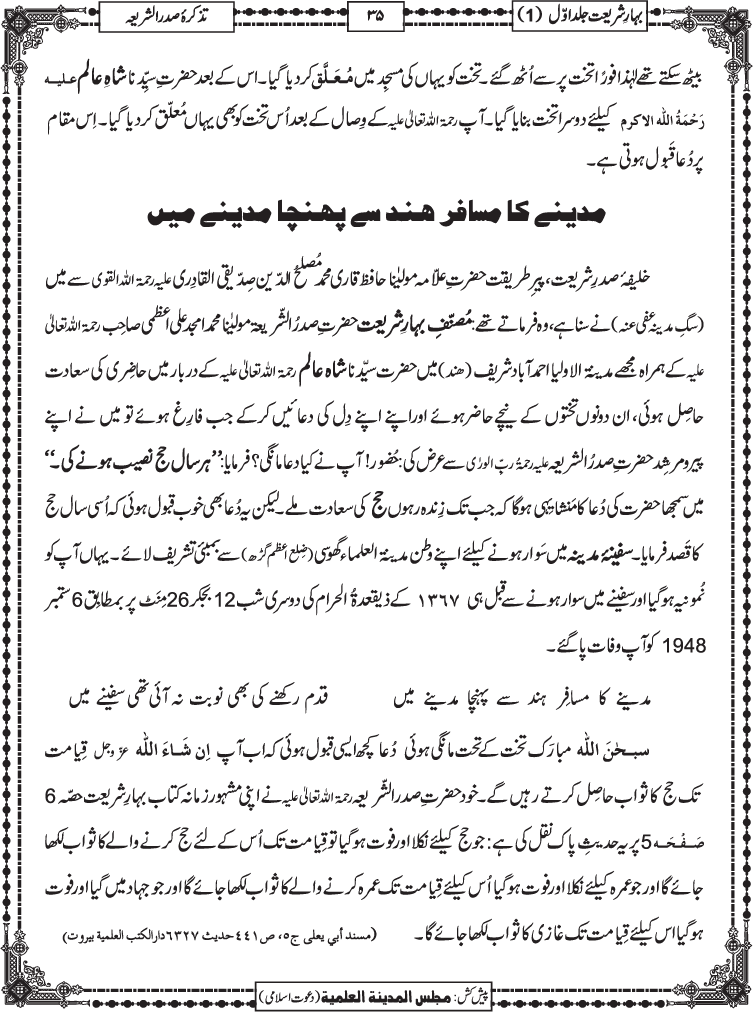 بہارِ شریعت جلد اوّل (1)
۳۵
تذکرۂ صدر الشریعہ
بیٹھ سکتے تھے لہٰذا فورًا تخت پر سے اُٹھ گئے۔ تخت کو یہاں کی مسجِد میں مُعَلَّق کردیا گیا۔ اس کے بعد حضرتِ سیِّدنا شاہِ عالم علیہ
رَحْمَةُ اللہِ الاکرم کیلئے دوسرا تخت بنایا گیا۔ آپ رحمۃ اللہ تعالیٰ علیہ کے وِصال کے بعد اُس تخت کو بھی یہاں مُعلّق کردیا گیا۔ اِس مقام
پر دُعا قَبول ہوتی ہے۔
مدینے کا مسافر ھند سے پہنچا مدینے میں
خلیفۂ صدرِ شریعت، پیرِ طریقت حضرتِ علاّمہ مولیٰنا حافظ قاری محمد مُصلحُ الدّین صِدّیقی القادِری علیہ رحمۃ اللہ القوی سے میں
(سگِ مدینہ عفی عنہ) نے سنا ہے، وہ فرماتے تھے: مُصَنّفِ بہارِ شریعت حضرتِ صدرُ الشّریعۃ مولیٰنا محمد امجد علی اعظمی صاحب رحمۃ اللہ تعالیٰ
علیہ کے ہمراہ مجھے مدینۃ الاولیا احمد آباد شریف (ھند) میں حضرت سیِّدنا شاہ عالم رحمۃ اللہ تعالیٰ علیہ کے دربار میں حاضِری کی سعادت
حاصِل ہوئی، ان دونوں تختوں کے نیچے حاضر ہوئے اور اپنے اپنے دِل کی دعائیں کرکے جب فارِغ ہوئے تو میں نے اپنے
پیر و مرشِد حضرتِ صدرُ الشریعہ علیہ رحمۃُ ربِّ الورٰی سے عرض کی: حُضور! آپ نے کیا دعا مانگی؟ فرمایا: ’’ہر سال حج نصیب ہونے کی۔‘‘
میں سمجھا حضرت کی دُعا کا مَنشا یہی ہوگا کہ جب تک زِندہ رہوں حج کی سعادت ملے۔ لیکن یہ دُعا بھی خوب قبول ہوئی کہ اُسی سال حج
کا قَصد فرمایا۔ سفینۂ مدینہ میں سَوار ہونے کیلئے اپنے وطن مدینۃ العلماء گھوسی (ضِلع اعظم گڑھ) سے بمبئی تشریف لائے۔ یہاں آپ کو
نُمونیہ ہوگیا اور سفینے میں سوار ہونے سے قبل ہی ۱۳۶۷ کے ذیقعدۃُ الحرام کی دوسری شب 12 بجکر 26 مِنَٹ پر بمطابِق 6 ستمبر
1948 کو آپ وفات پا گئے۔
مدینے کا مسافِر ہند سے پہنچا مدینے میں قدم رکھنے کی بھی نوبت نہ آئی تھی سفینے میں
سبحٰنَ اللہ مبارَک تخت کے تحت مانگی ہوئی دُعا کچھ ایسی قبول ہوئی کہ اب آپ اِن شَاءَ اللہ عزّوجل قِیامت
تک حج کا ثواب حاصِل کرتے رہیں گے۔ خود حضرتِ صدر الشّریعہ رحمۃ اللہ تعالیٰ علیہ نے اپنی مشہورِ زمانہ کتاب بہارِ شریعت حصّہ 6
صَفْحَہ 5 پر یہ حدیثِ پاک نقل کی ہے: جو حج کیلئے نکلا اور فوت ہوگیا تو قِیامت تک اُس کے لئے حج کرنے والے کا ثواب لکھا
جائے گا اور جو عمرہ کیلئے نکلا اور فوت ہوگیا اُس کیلئے قِیامت تک عمرہ کرنے والے کا ثواب لکھا جائے گا اور جو جہاد میں گیا اور فوت
ہوگیا اس کیلئے قِیامت تک غازی کا ثواب لکھا جائے گا۔ (مسند أبي يعلى ج۵، ص۴۴۱ حدیث ۶۳۲۷ دار الکتب العلمیة بیروت)
پیش کش: مجلس المدينة العلمية (دعوتِ اسلامی)